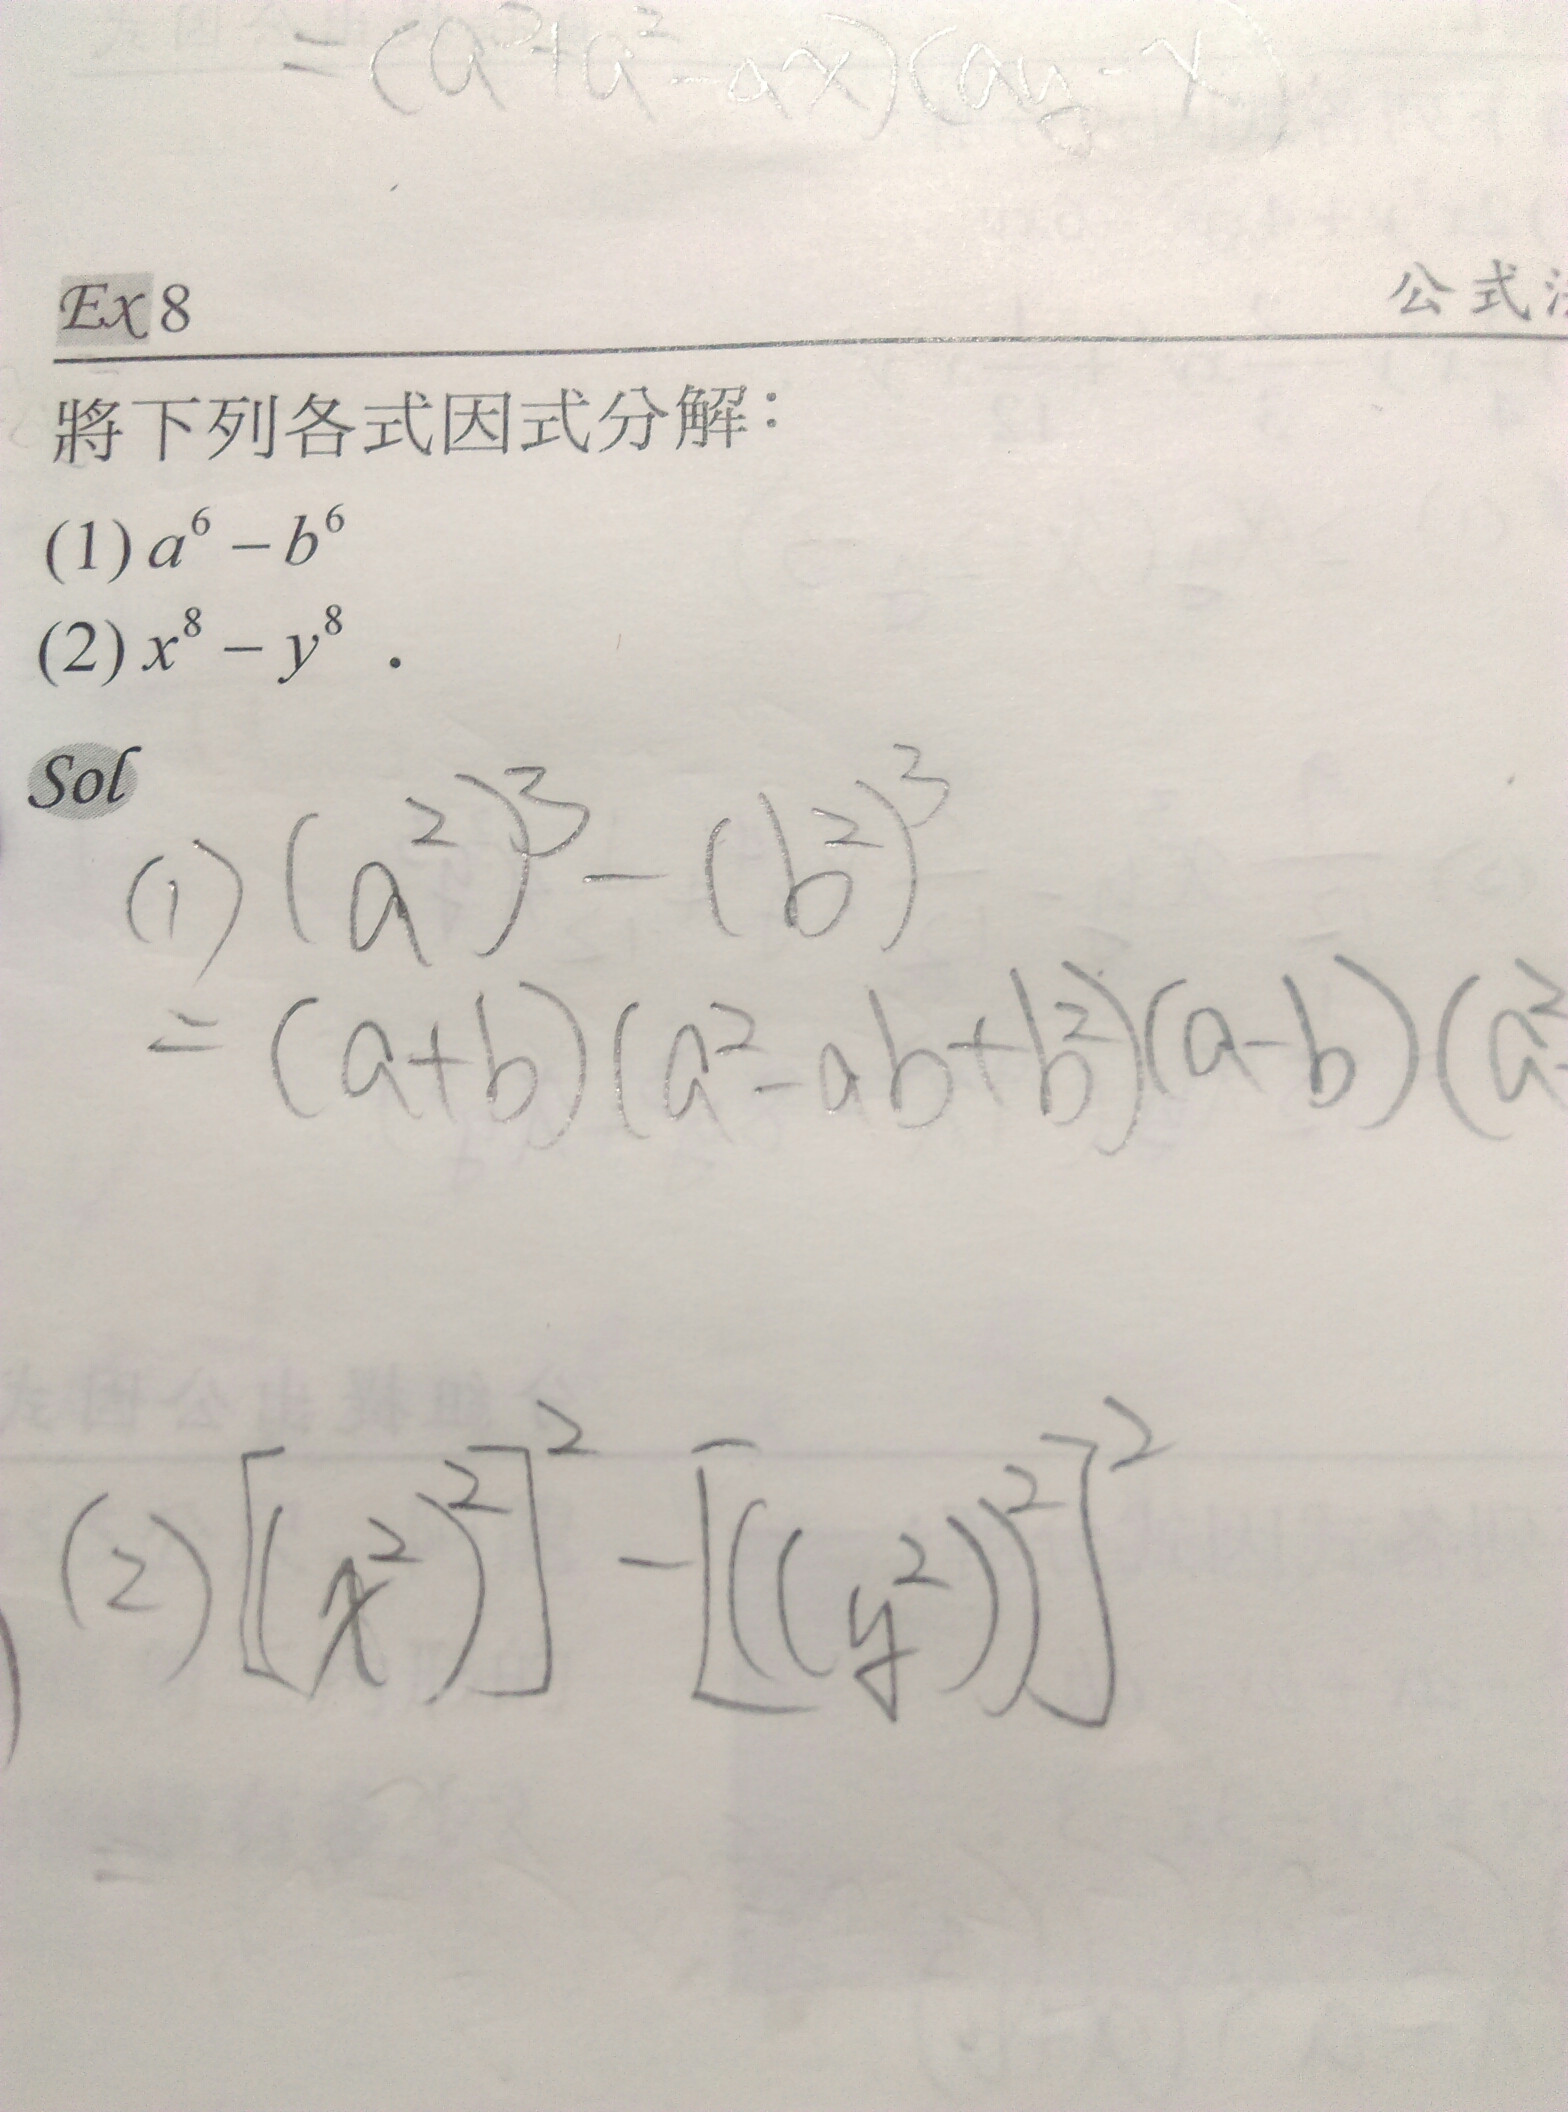 = (a²+a²-ax)(ay-x)
Ex 8
公式
將下列各式因式分解：
(1) a⁶ − b⁶
(2) x⁸ − y⁸ .
Sol
(1) (a²)³ − (b²)³
= (a+b)(a²-ab+b²)(a-b)(a²
(2) [(x²)²]² − [((y²))²]²